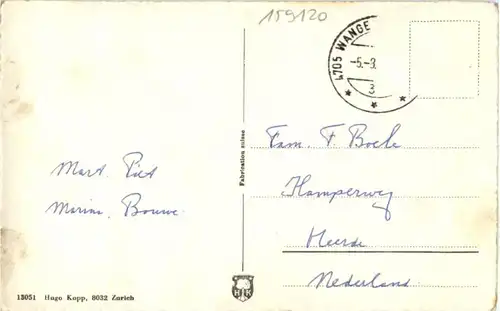 159120
4705 WANGE
-5.-9.
3
Fam. F. Boele
Kamperweg
Heerde
Nederland
Mart. Piet
Marine. Bouwe
Fabrication suisse
HK
13051 Hugo Kopp, 8032 Zurich